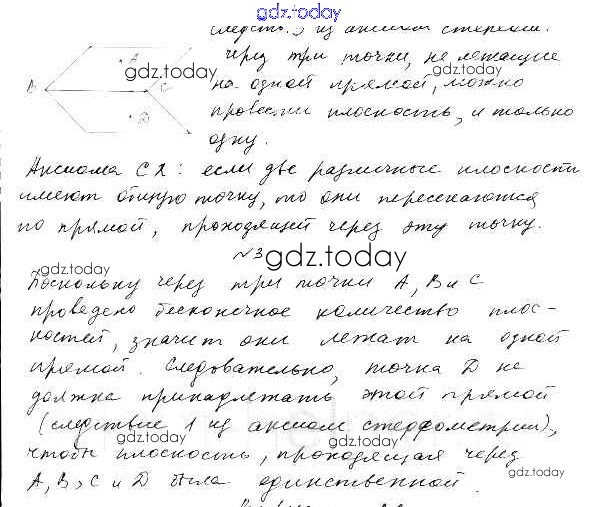 gdz.today
следств. 3 из аксиом стереом.
Через три точки, не лежащие
A
gdz.today
B
C
на одной прямой, можно
gdz.today
провести плоскость, и только
D
одну.
Аксиома С2: если две различные плоскости
имеют общую точку, то они пересекаются
по прямой, проходящей через эту точку.
№3
gdz.today
gdz.today
Поскольку через три точки A, B и C
проведено бесконечное количество плос-
костей, значит они лежат на одной
прямой. Следовательно, точка D не
должна принадлежать этой прямой
(следствие 1 из аксиом стереометрии),
gdz.today
gdz.today
чтобы плоскость, проходящая через
gdz.today
A, B, C и D была единственной.